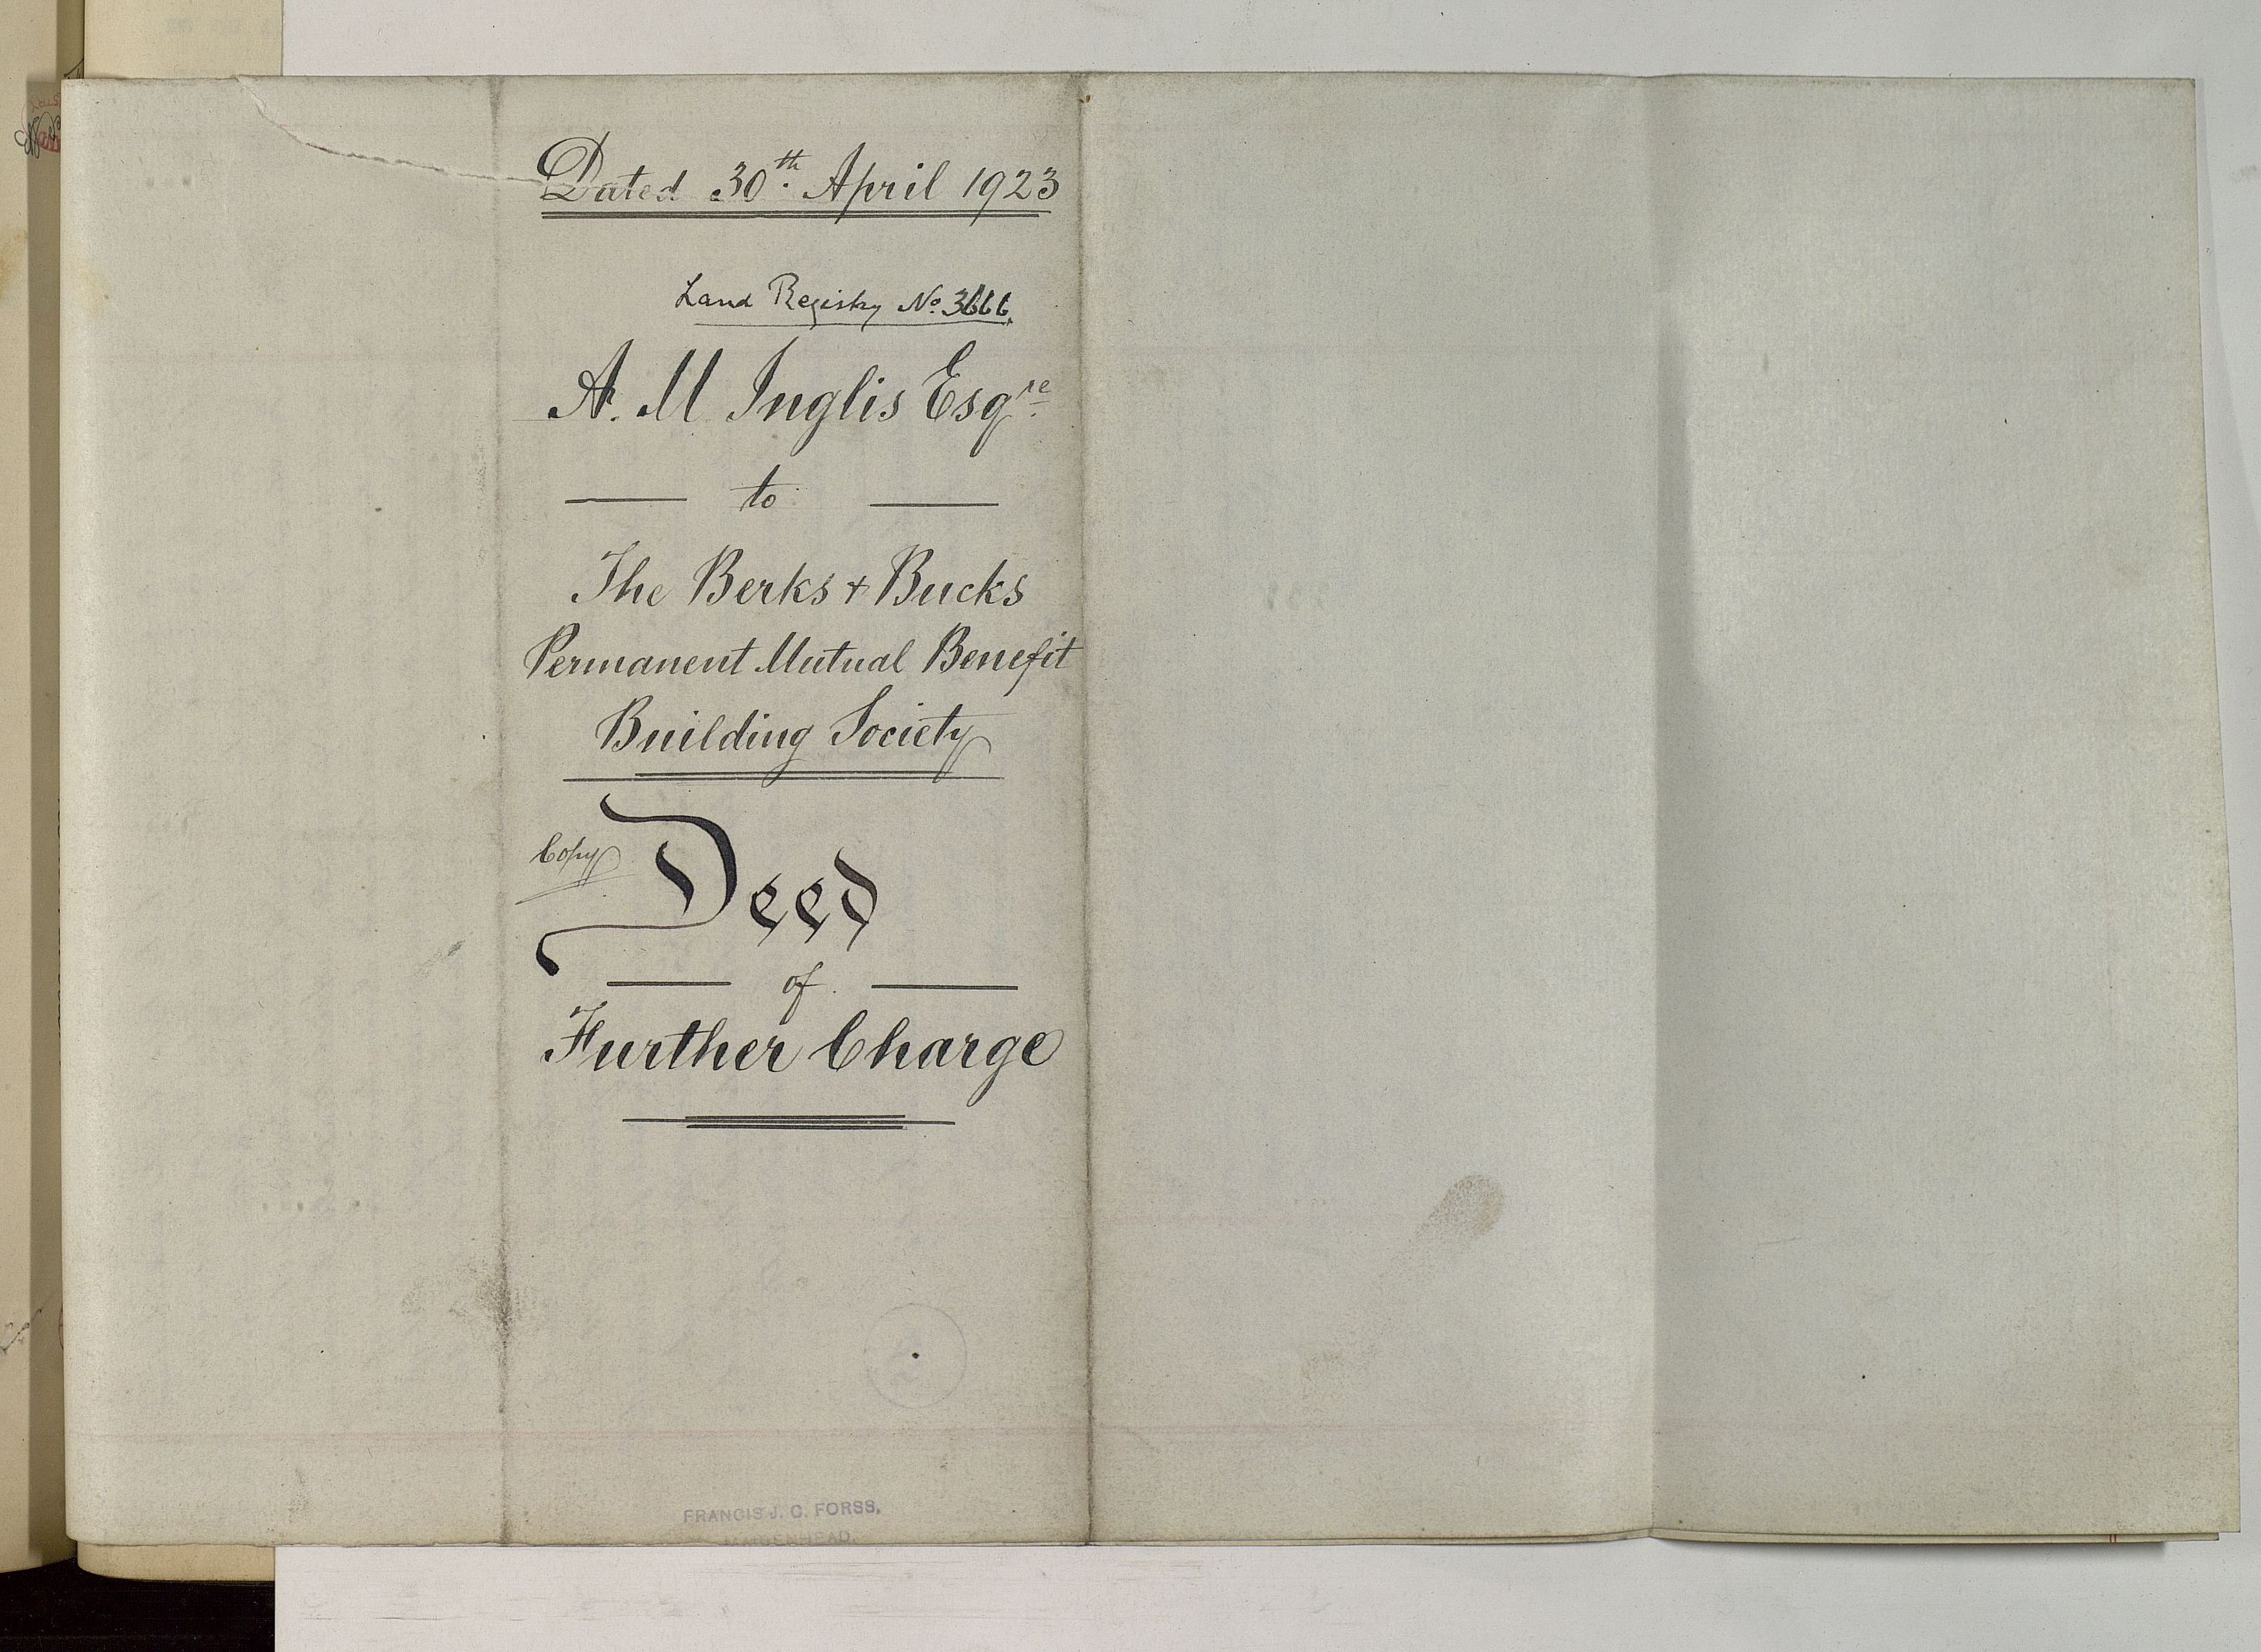 Dated 30th April 1923
Land Registry No. 3666.
A. M Inglis Esqre
to
The Berks + Bucks
Permanent Mutual Benefit
Building Society
Copy
Deed
of
Further Charge
FRANCIS J. C. FORSS,
MAIDENHEAD.